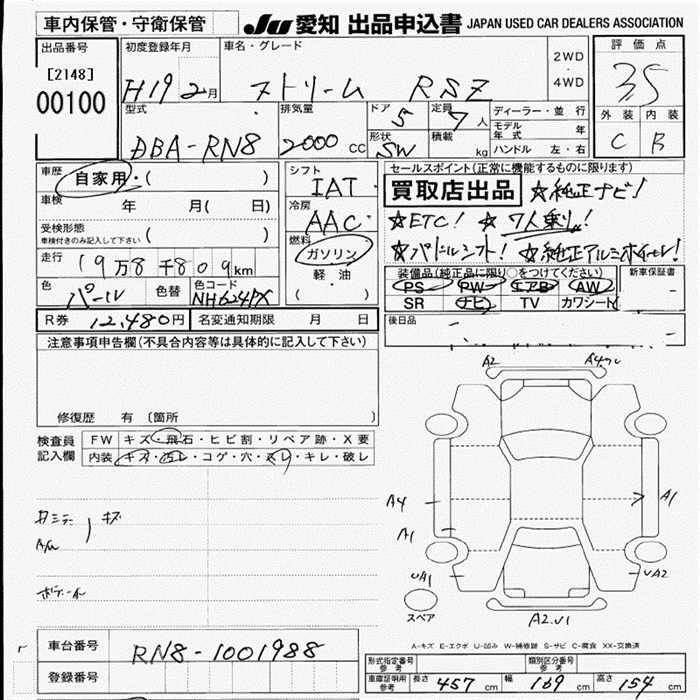 車内保管・守衛保管
JU 愛知 出品申込書 JAPAN USED CAR DEALERS ASSOCIATION
出品番号 初度登録年月 車名・グレード 2WD・4WD 評価点
[2148] H19 2月 ストリーム RSZ 3.5
00100
型式 排気量 ドア 5 定員 7人 ディーラー・並行 外装 内装
DBA-RN8 2000 CC 形状 SW 積載 kg モデル年式 年 C B
ハンドル 左・右
車歴 自家用・( ) シフト IAT セールスポイント(正常に機能するものに限ります)
車検 年 月( 日) 冷房 AAC 買取店出品 ☆純正ナビ!
受検形態 ( ) ☆ETC! ☆7人乗り!
車検付きのみ記入して下さい
燃料 ガソリン ☆パドルシフト! ☆純正アルミホイール!
走行 19万8千809km 軽・油 装備品(純正品に限り○をつけてください) 新車保証書
( ) PS PW エアB AW
色 パール 色替 色コード NH624PX SR ナビ TV カワシート
R券 12,480円 名変通知期限 月 日 後日品
注意事項申告欄(不具合内容等は具体的に記入して下さい)
修復歴 有 〔箇所 〕
A2
検査員記入欄 FW キズ・飛石・ヒビ割・リペア跡・X要
内装 キズ・汚レ・コゲ・穴・スレ・キレ・破レ
A4 A1
A1
キズ
UA1 UA2
スペア A2.U1
A-キズ E-エクボ U-凹み W-補修跡 S-サビ C-腐食 XX-交換済
車台番号 RN8-1001988
登録番号
形式指定番号 参考 類別区分番号 参考
車庫証明用 参考 長さ 457 cm 幅 169 cm 高さ 154 cm